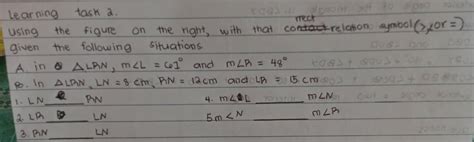 Learning task 2.
Using the figure on the right, with that correct relation symbol (>, <, or =)
given the following situations
A in △LPiN, m∠L = 61° and m∠Pi = 48°
B. In △LPiN, LN = 8 cm, PiN = 12cm and LPi = 15 cm
1. LN ____ PiN 4. m∠L ____ m∠N
2. LPi ____ LN 5 m∠N ____ m∠Pi
3. PiN ____ LN